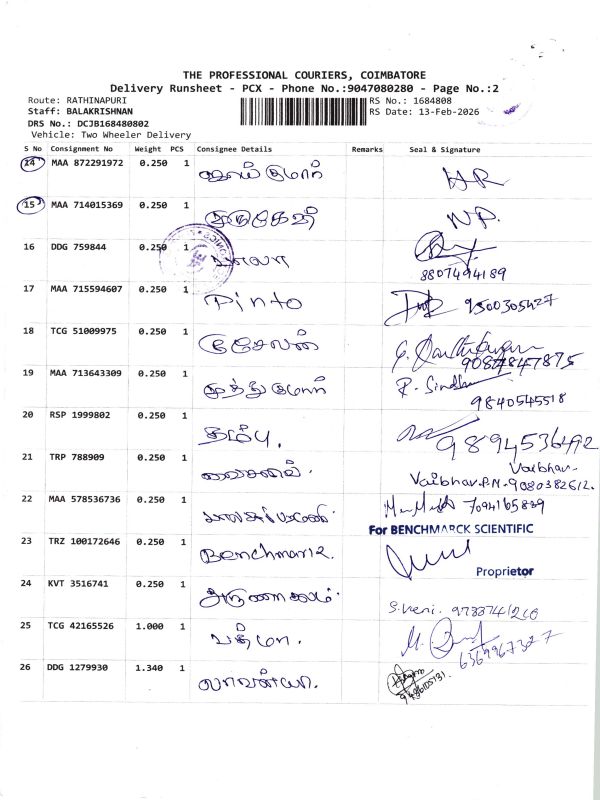 THE PROFESSIONAL COURIERS, COIMBATORE
Delivery Runsheet - PCX - Phone No.:9047080280 - Page No.:2
Route: RATHINAPURI RS No.: 1684808
Staff: BALAKRISHNAN RS Date: 13-Feb-2026
DRS No.: DCJB168480802
Vehicle: Two Wheeler Delivery
S No Consignment No Weight PCS Consignee Details Remarks Seal & Signature
14 MAA 872291972 0.250 1 HR
15 MAA 714015369 0.250 1 N.P.
16 DDG 759844 0.250 1
8807494189
17 MAA 715594607 0.250 1 Pinto 9500305427
18 TCG 51009975 0.250 1
19 MAA 713643309 0.250 1 முத்துகுமார் R. Sindhu
9840545518
20 RSP 1999802 0.250 1 தம்பு.
21 TRP 788909 0.250 1 வைசனவ். Vaibhav.
Vaibhav.P.N.-9080382612.
22 MAA 578536736 0.250 1 7094165839
For BENCHMARCK SCIENTIFIC
23 TRZ 100172646 0.250 1 Benchmark.
Proprietor
24 KVT 3516741 0.250 1 அருணாசலம். S.Veni.
25 TCG 42165526 1.000 1 பத்மா.
6369967327
26 DDG 1279930 1.340 1 லாவண்யா.
9486105131.